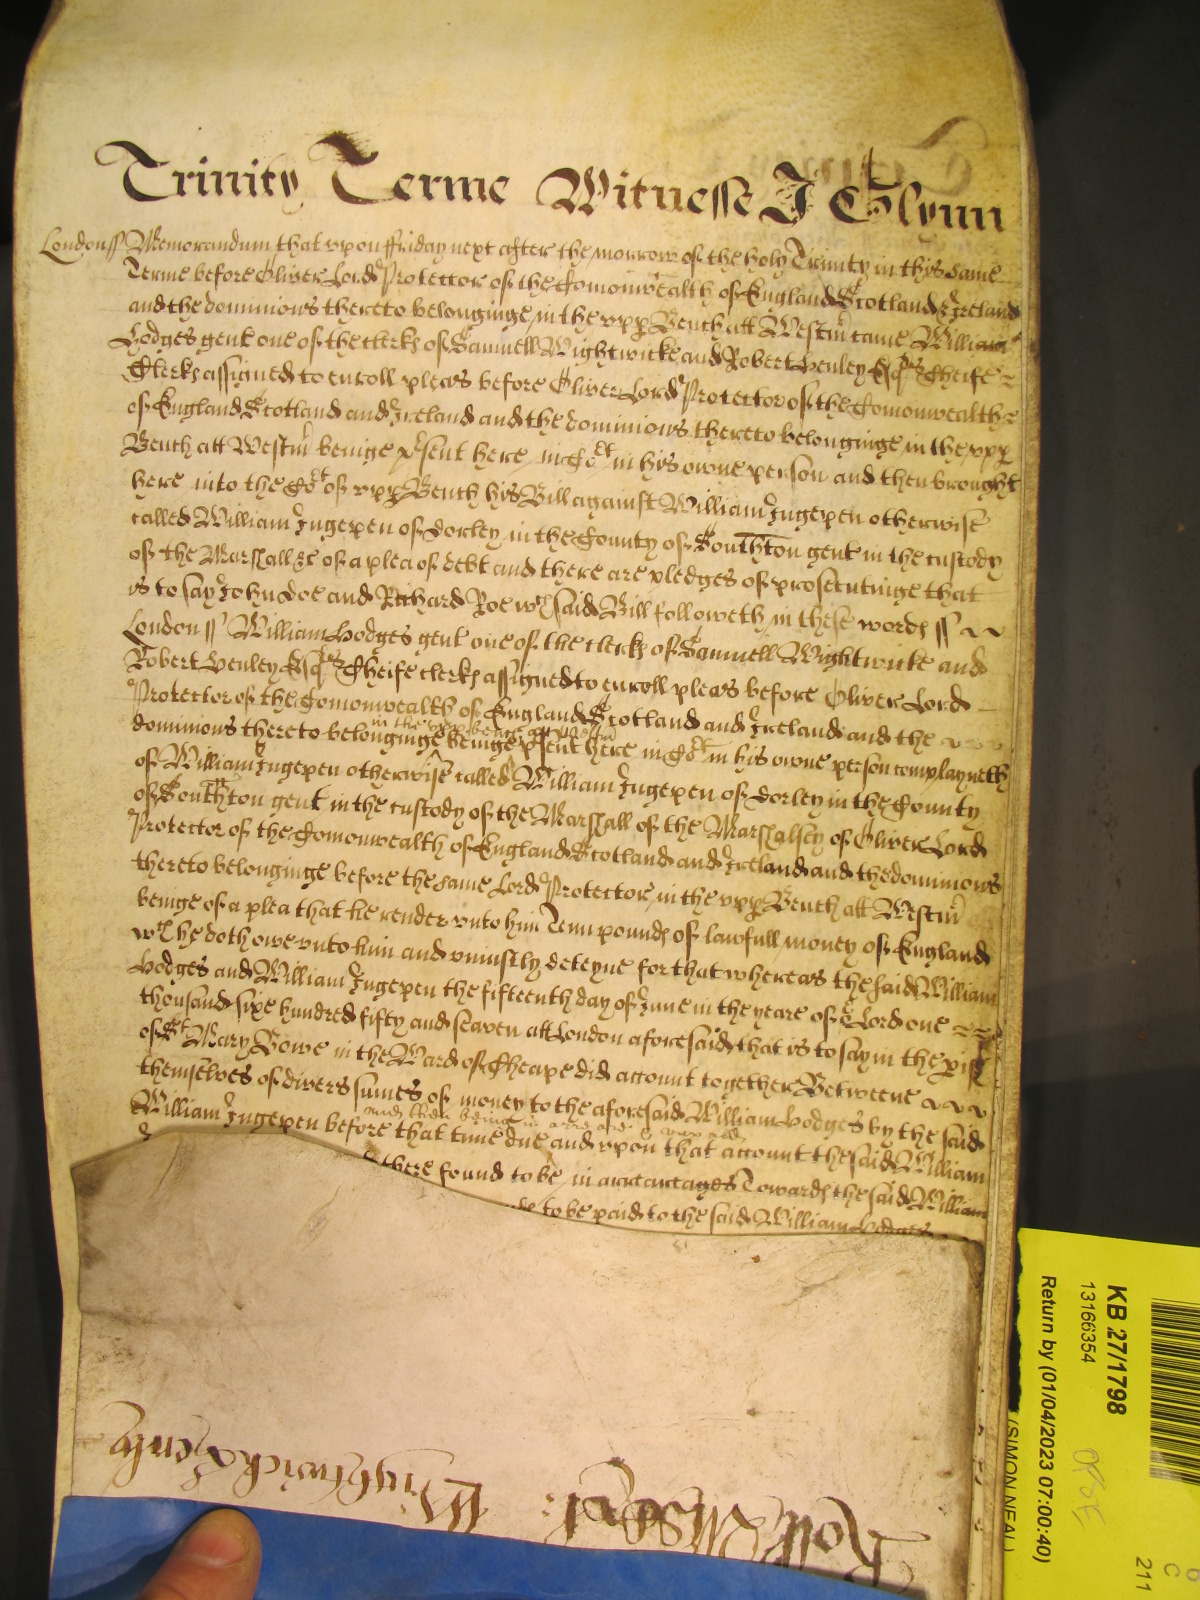 Trinity Terme Witnesse J Glynn
London ss Memorandum that vpon ffriday next after the morrow of the holy Trinity in this same
Terme before Oliver Lord Protector of the Comonwealth of England Scotland & Ireland
and the dominions thereto belonginge in the vpp Bench att Westm̄ came William
Hodges gent one of the clerks of Samuell Wightwicke and Robert Henley Esqrs Cheife
Clerks assigned to enroll pleas before Oliver Lord Protector of the Comonwealth
of England Scotland and Ireland and the dominions thereto belonginge in the vpp
Bench att Westm̄ beinge p̄sent here in Co:rt in his owne person and then brought
here into the Co:rt of vpp Bench his Bill against William Ingepen otherwise
called William Ingepen of Dorley in the County of Southton gent in the custody
of the Marshall &c of a plea of debt and there are pledges of prosecutinge that
is to say John Doe and Richard Roe wch said Bill followeth in these words ss
London ss William Hodges gent one of the clerks of Samuell Wightwicke and
Robert Henley Esqrs Cheife clerks assigned to enroll pleas before Oliver Lord
Protector of the Comonwealth of England Scotland and Ireland and the
in the vpp bench att Westm̄
dominions thereto belonginge beinge p̄sent here in Co:rt in his owne person complayneth
of William Ingepen otherwise called William Ingepen of Dorley in the County
of Southton gent in the custody of the Marshall of the Marshalsey of Oliver Lord
Protector of the Comonwealth of England Scotland and Ireland and the dominions
thereto belonginge before the same Lord Protector in the vpp Bench att Westm̄
beinge of a plea that he render vnto him Tenn pounds of lawfull money of England
wch he doth owe vnto him and vniustly deteyne for that whereas the said William
Hodges and William Ingepen the fifteenth day of June in the yeare of or Lord one
thousand sixe hundred fifty and seaven att London aforesaid that is to say in the pish
of St Mary Bowe in the Ward of Cheape did account together Betweene
themselves of divers sumes of money to the aforesaid William Hodges by the said
and then beinge in
William Ingepen before that time due and vpon that account the said William
there found to be in arrearages Towards the said William
to be paid to the said William Hodges
Wightwick & Henly
KB 27/1798
13166354
Return by (01/04/2023 07:00:40)
(SIMON NEAL)
211